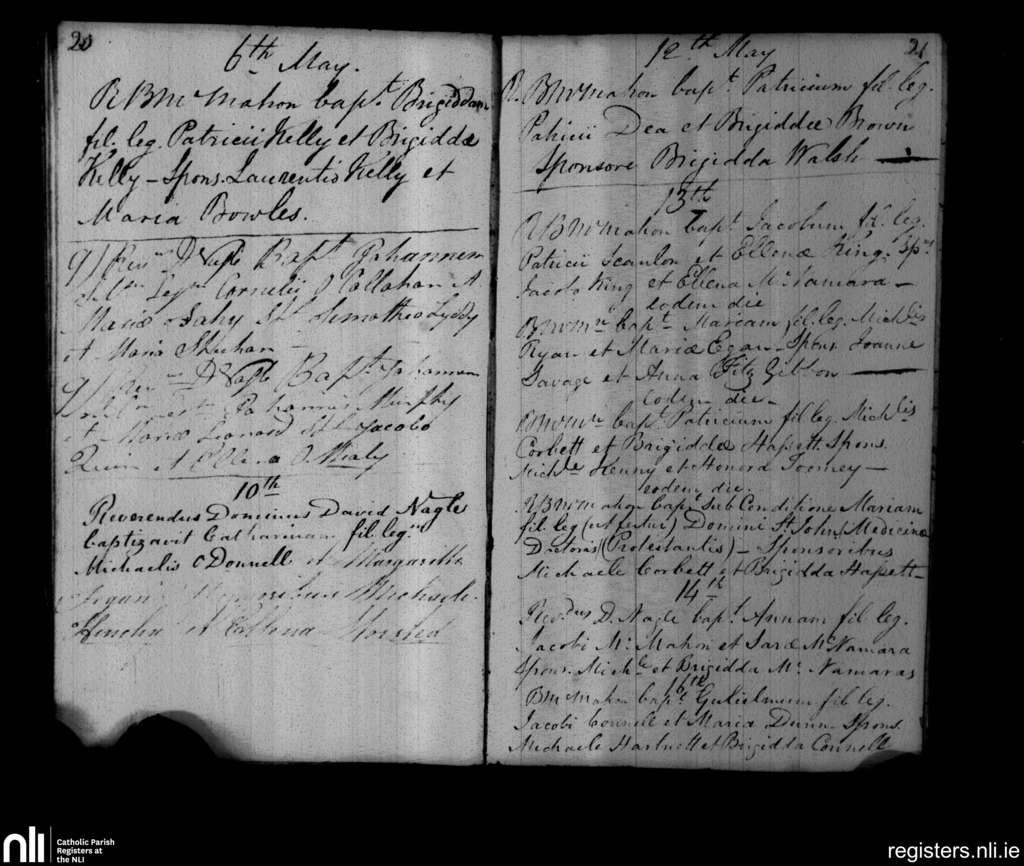 20
6th May.
R B McMahon bapt. Brigiddam
fil. leg. Patricii Kelly et Brigiddæ
Kelly – Spons. Laurentio Kelly et
Maria Bowles.
9) Revn. D Nagle Bapt Johannem
Legm Cornelii O Callahan
Mariæ Timotheo Lyddy
et Maria Shuhan
9) D Nagle Bapt Johannem
Johannis Murphy
et Mariæ Leonard Jacobo
Quin et O Healy
10th
Reverendus Dominus David Nagle
baptizavit Catharinam fil. leg.
Michaelis O Donnell et Margarettæ
Michaele
et
21
12th May
R. B McMahon bapt. Patricium fil. leg.
Patricii Dea et Brigiddæ Brown
Sponsore Brigidda Walsh
13th
R B McMahon bapt. Jacobum fil. leg.
Patricii Scanlon et Ellenæ King. Sps
Jacobo King et Ellena McNamara –
eodem die
bapt. Mariam fil. leg. Michlis
Ryan et Mariæ Egan – Spons. Joanne
Savage et Anna Fitz Gibbon
eodem die –
bapt. Patricium fil. leg. Michlis
Corbett et Brigiddæ Hassett. Spons.
Michle Henny et Honora Toomey –
eodem die.
R B McMahon bapt. Sub Conditione Mariam
fil. leg. (ut fertur) Domini St. John, Medicinæ
Doctoris (Protestantis) – Sponsoribus
Michaele Corbett et Brigidda Hassett –
14th
Revdus D. Nagle bapt. Annam fil leg.
Jacobi Mc. Mahon et Saræ McNamara
Spons. Michle et Brigidda Mc. Namaras
16th
B McMahon bapt. Gulielmum fil leg.
Jacobi Connell et Maria Dunn – Spons
Michaele Hartnett et Brigidda Connell
nli
Catholic Parish
Registers at
the NLI
registers.nli.ie